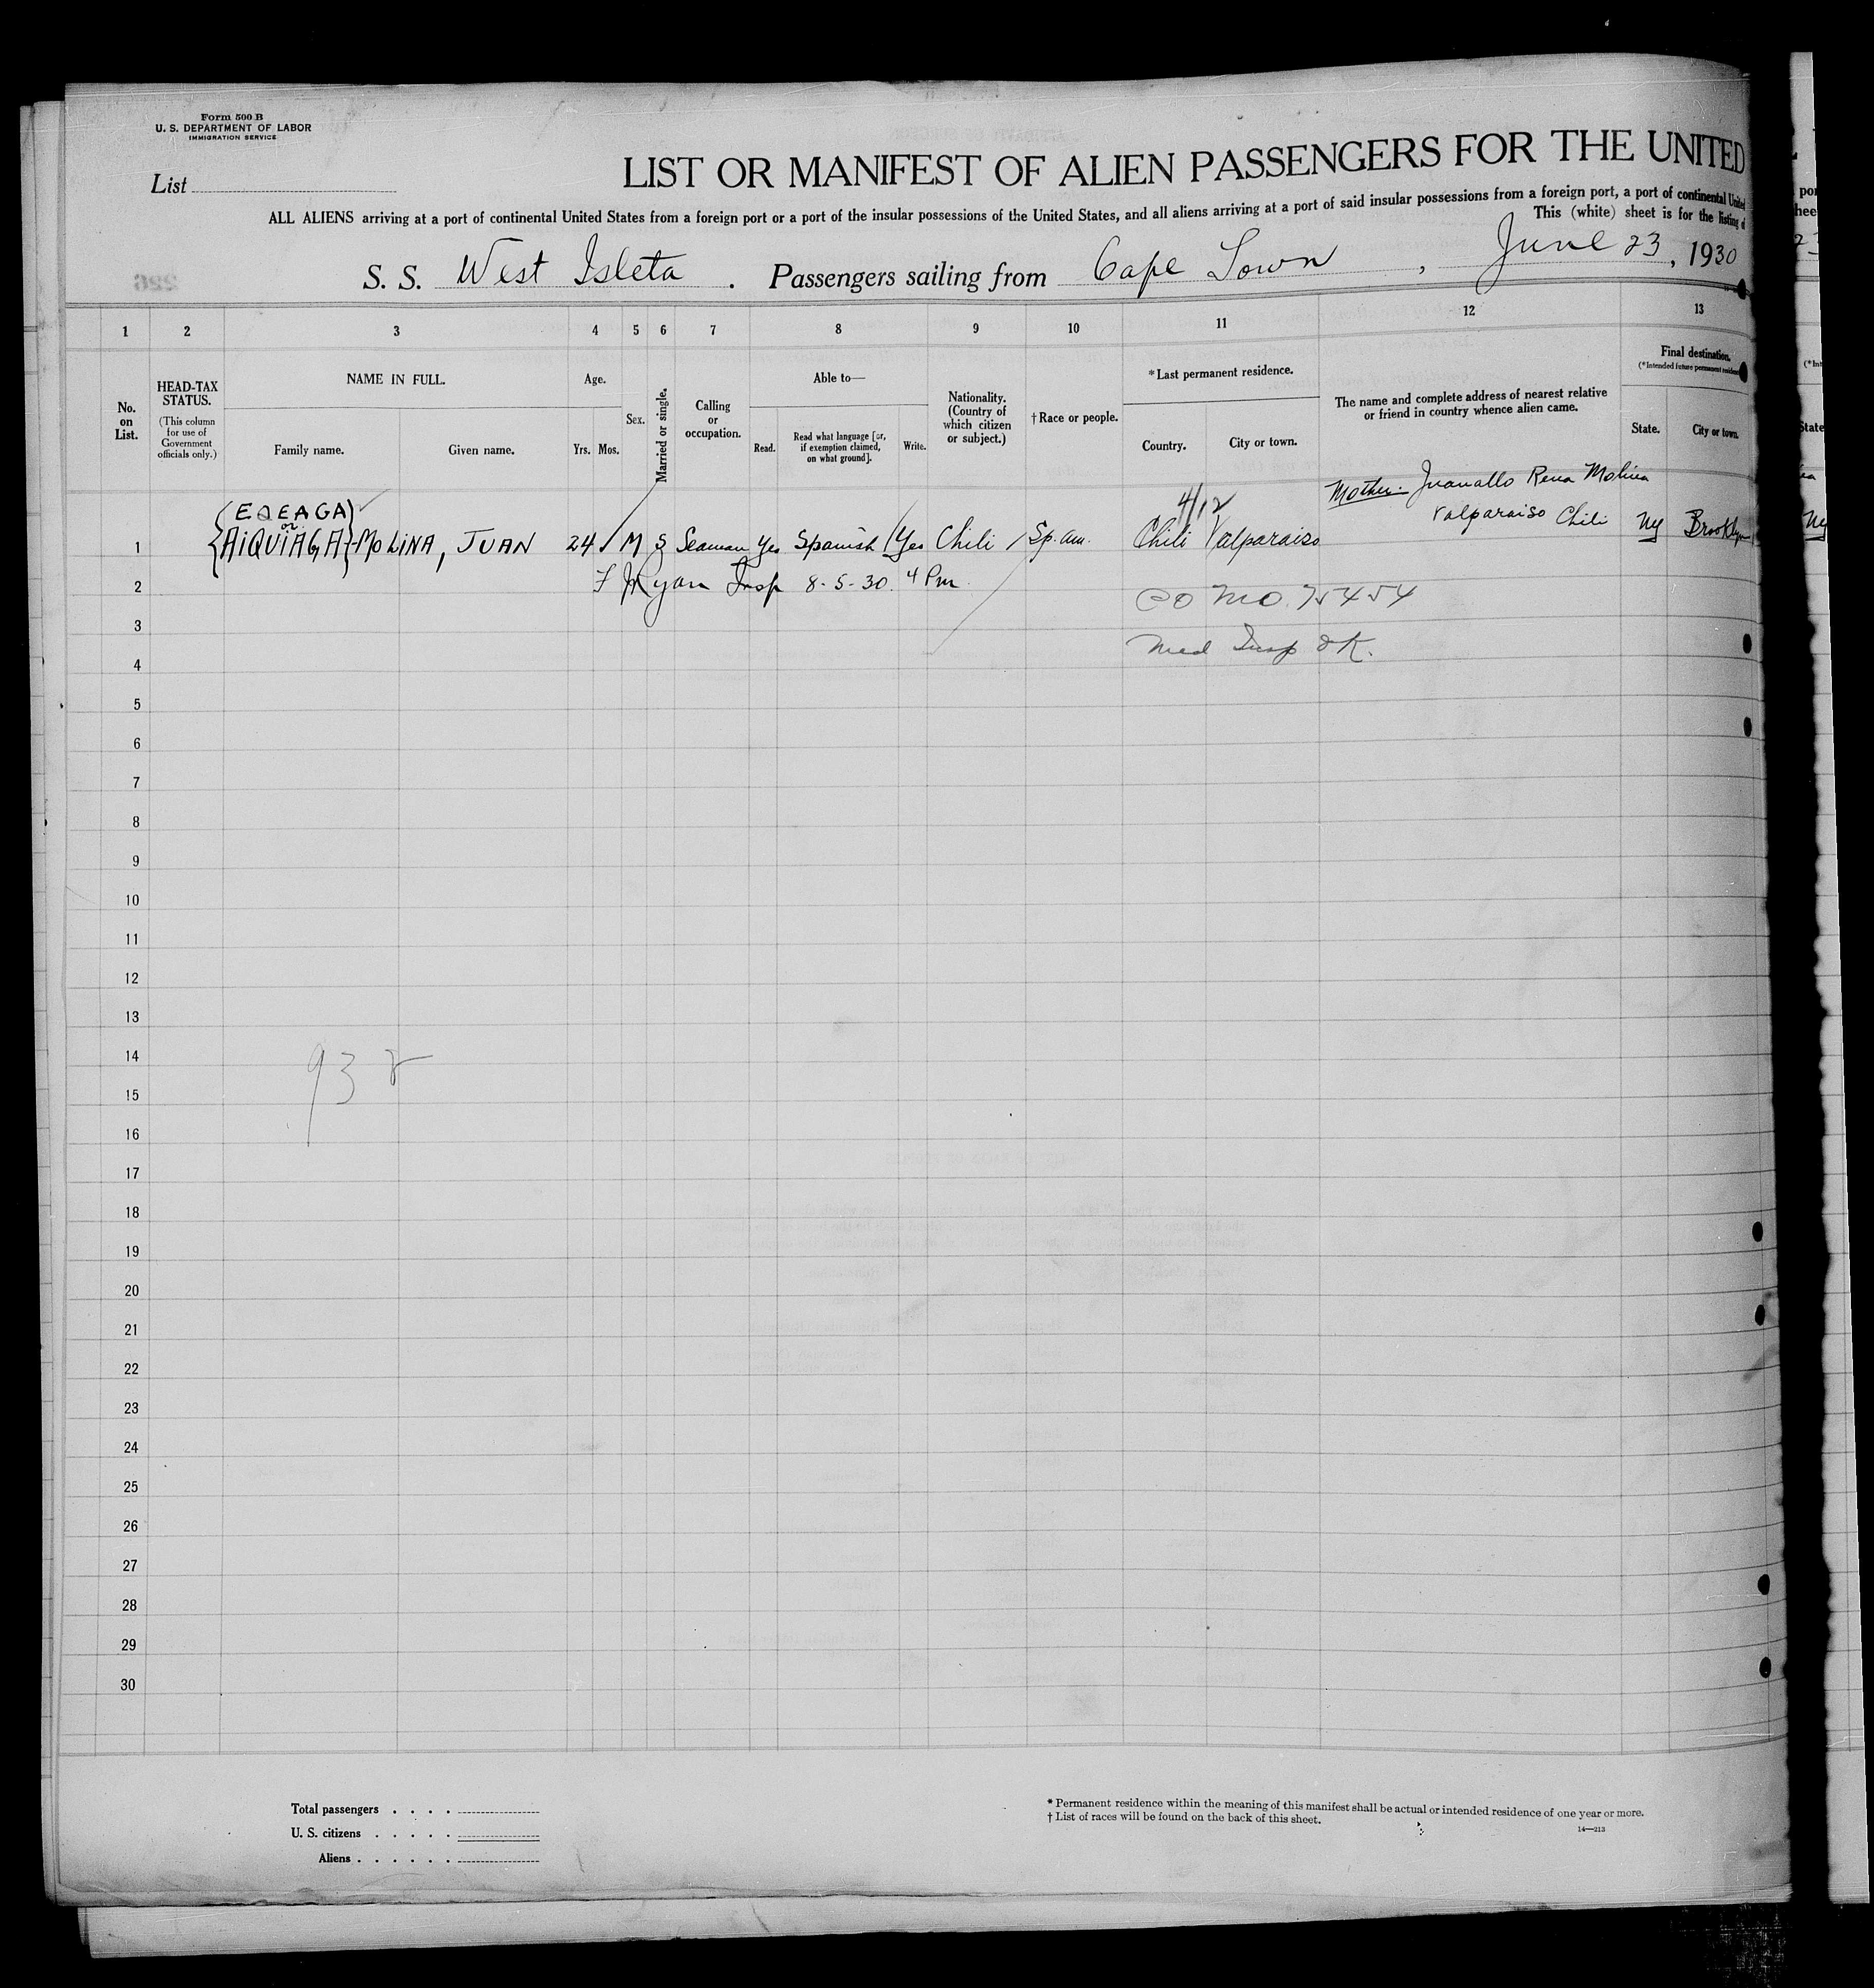 Form 500 B
U. S. DEPARTMENT OF LABOR
IMMIGRATION SERVICE
List
LIST OR MANIFEST OF ALIEN PASSENGERS FOR THE UNITED
ALL ALIENS arriving at a port of continental United States from a foreign port or a port of the insular possessions of the United States, and all aliens arriving at a port of said insular possessions from a foreign port, a port of continental United
This (white) sheet is for the listing of
S. S. West Isleta . Passengers sailing from Cape Town , June 23, 1930
226
1 2 3 4 5 6 7 8 9 10 11 12 13
No. on List.
HEAD-TAX STATUS.
(This column for use of Government officials only.)
NAME IN FULL.
Family name. Given name.
Age.
Yrs. Mos.
Sex.
Married or single.
Calling or occupation.
Able to—
Read. Read what language [or, if exemption claimed, on what ground]. Write.
Nationality. (Country of which citizen or subject.)
† Race or people.
* Last permanent residence.
Country. City or town.
The name and complete address of nearest relative or friend in country whence alien came.
Final destination.
(*Intended future permanent residence
State. City or town.
(EQEAGA)
or
1 {AiQUiAGA}-MOLINA, JUAN 24 M S Seaman Yes Spanish Yes Chili Sp. am. Chili Valparaiso
4/12
Mother Rena Molina
Valparaiso Chili NY Brooklyn
2 F J Ryan Insp 8-5-30. 4 Pm
CO NO. 75454
3
Med Insp OK.
4
5
6
7
8
9
10
11
12
13
14
938
15
16
17
18
19
20
21
22
23
24
25
26
27
28
29
30
Total passengers . . . .
U. S. citizens . . . . .
Aliens . . . . . .
* Permanent residence within the meaning of this manifest shall be actual or intended residence of one year or more.
† List of races will be found on the back of this sheet.
14—213